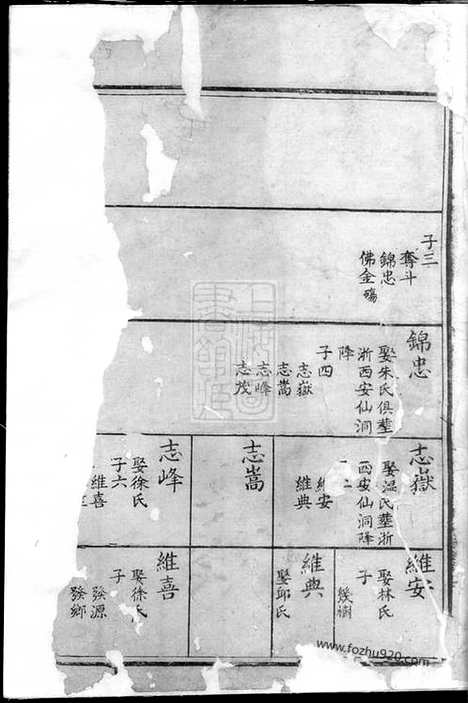 子三
奪斗
錦忠
佛金殤
錦忠
娶朱氏俱塟
浙西安仙洞
降
子四
志嶽
志嵩
志峰
志茂
志嶽
娶温氏塟浙
西安仙洞降
子二
維安
維典
志嵩
志峰
娶徐氏
子六
維喜
維安
娶林氏
子
維典
娶邱氏
維喜
娶徐氏
子
發源
發鄉
www.fozhu920.com